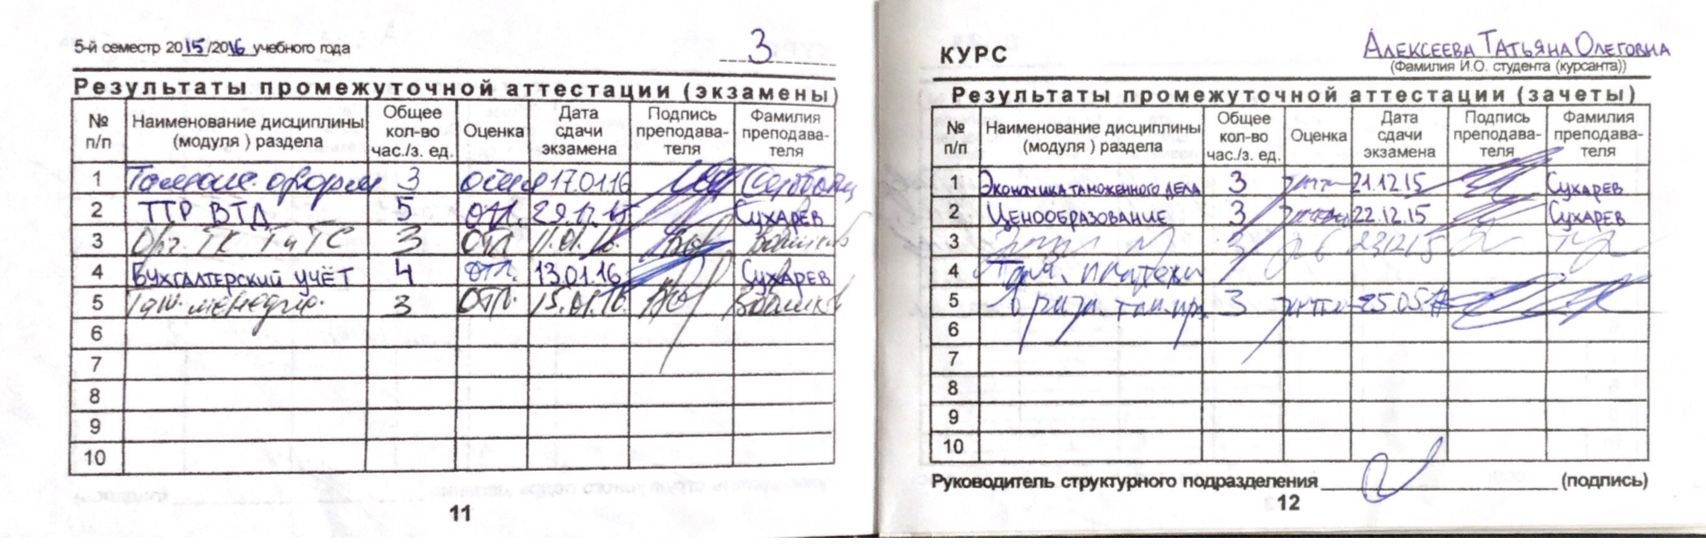 5-й семестр 2015/2016 учебного года 3
Результаты промежуточной аттестации (экзамены)
№ п/п Наименование дисциплины (модуля ) раздела Общее кол-во час./з. ед. Оценка Дата сдачи экзамена Подпись преподава-теля Фамилия преподава-теля
1 3 17.01.16
2 ПР ВТД 5 отл. Сухарев
3 Орг. ТК ТиТС 3 отл. 11.01.16
4 Бухгалтерский учёт 4 отл. 13.01.16 Сухарев
5 Там. менеджм. 3 отл. 15.01.16
6
7
8
9
10
11
КУРС Алексеева Татьяна Олеговна
(Фамилия И.О. студента (курсанта))
Результаты промежуточной аттестации (зачеты)
№ п/п Наименование дисциплины (модуля ) раздела Общее кол-во час./з. ед. Оценка Дата сдачи экзамена Подпись преподава-теля Фамилия преподава-теля
1 Экономика таможенного дела 3 21.12.15 Сухарев
2 Ценообразование 3 22.12.15 Сухарев
3 3 23.12.15
4 Там. платежи
5 в разл. там. пр. 3
6
7
8
9
10
Руководитель структурного подразделения (подпись)
12